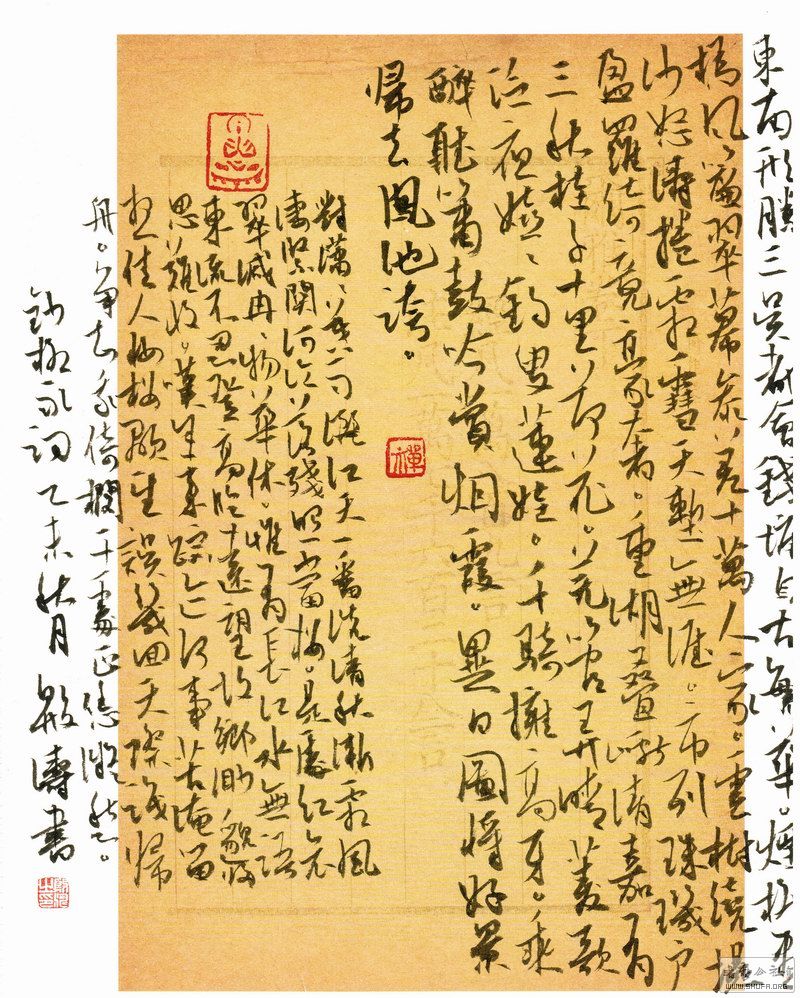 東南形勝三吴都會錢塘自古繁華。煙柳畫
橋風簾翠幕參差十萬人家。雲樹繞堤
沙怒濤捲霜雪天塹無涯。市列珠璣户
盈羅綺竞豪奢。重湖疊巘清嘉有
三秋桂子十里荷花。羌管弄晴菱歌
泛夜嬉嬉釣叟蓮娃。千騎擁高牙。乘
醉聽簫鼓吟賞烟霞。異日圖將好景
帰去鳳池誇。
對瀟瀟暮雨灑江天一番洗清秋漸霜風
淒緊關河冷落殘照當樓。是處红衰
翠減冉冉物華休。惟有長江水無語
東流不忍登高臨遠望故鄉渺邈歸
思難收。嘆年來踪跡何事苦淹留
想佳人妝樓顒望誤幾回天際識帰
舟。争知我倚欄干處正恁凝愁。
鈔柳永詞乙未秋月殷濤書
禪
WWW.SHUFA.ORG